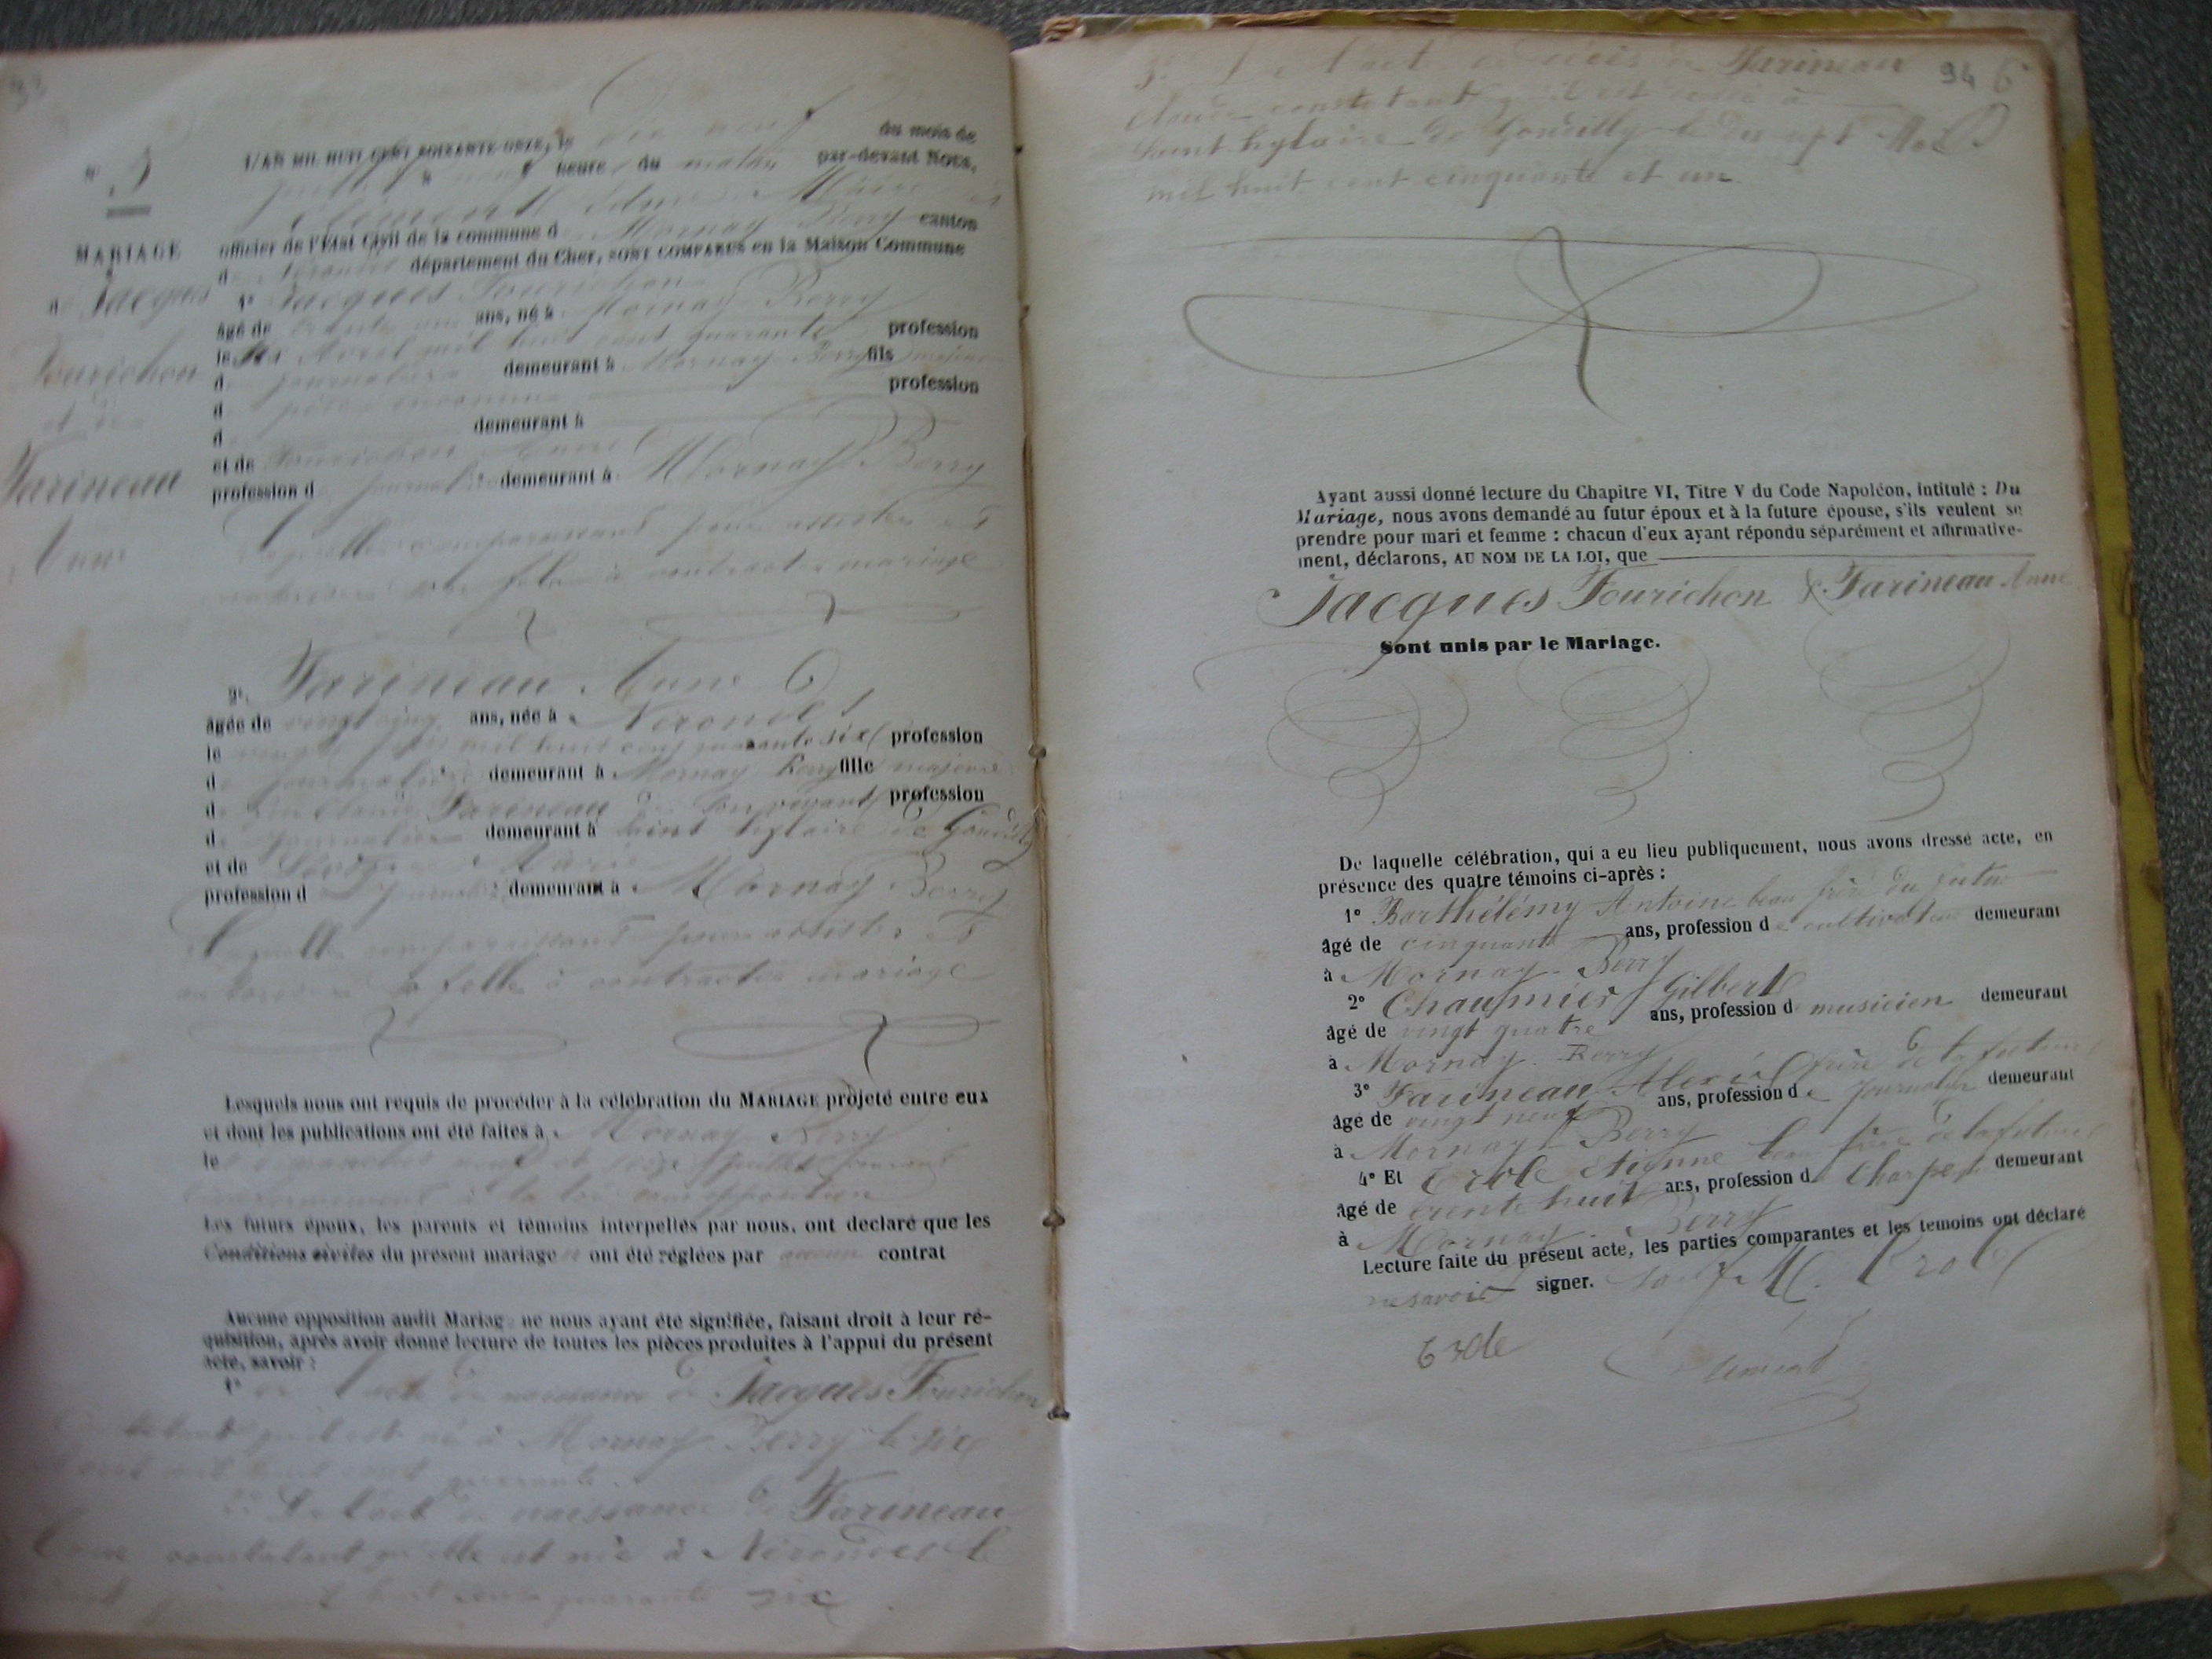 N° 5
MARIAGE
de Jacques
Fourichon
et de
Farineau
Anne
L'AN MIL HUIT CENT SOIXANTE-ONZE, le dix neuf du mois de
juillet à neuf heures du matin par-devant NOUS,
Clément Edme Maire et
officier de l'État Civil de la commune de Mornay Berry canton
de Nérondes département du Cher, SONT COMPARUS en la Maison Commune
1° Jacques Fourichon
âgé de trente un ans, né à Mornay-Berry
le six Avril mil huit cent quarante profession
de journalier demeurant à Mornay-Berry fils majeur
d père inconnu profession
d demeurant à
et de Fourichon Anne
profession de journalière demeurant à Mornay-Berry
laquelle comparaissant pour assister et
autoriser son fils à contracter mariage
2° Farineau Anne
âgée de vingt cinq ans, née à Nérondes
le vingt juin mil huit cent quarante six profession
de journalière demeurant à Mornay Berry fille majeure
de feu Claude Farineau de son vivant profession
de journalier demeurant à Saint hylaire de Gondilly
et de Marie
profession de journalière demeurant à Mornay Berry
Laquelle comparaissant pour assister et
autoriser sa fille à contracter mariage
Lesquels nous ont requis de procéder à la célébration du MARIAGE projeté entre eux
et dont les publications ont été faites à Mornay-Berry
les dimanches neuf et seize juillet courant
conformément à la loi sans opposition
Les futurs époux, les parents et témoins interpellés par nous, ont déclaré que les
Conditions civiles du présent mariage n' ont été réglées par aucun contrat
Aucune opposition audit Mariage ne nous ayant été signifiée, faisant droit à leur ré-
quisition, après avoir donné lecture de toutes les pièces produites à l'appui du présent
acte, savoir :
1° de l'acte de naissance de Jacques Fourichon
constatant qu'il est né à Mornay-Berry le six
avril mil huit cent quarante.
2° De l'acte de naissance de Farineau
Anne constatant qu'elle est née à Nérondes le
vingt juin mil huit cent quarante six
94 6
3° De l'acte de décès de Farineau
claude constatant qu'il est décédé à
Saint hylaire de Gondilly le dix sept Mai
mil huit cent cinquante et un
Ayant aussi donné lecture du Chapitre VI, Titre V du Code Napoléon, intitulé : Du
Mariage, nous avons demandé au futur époux et à la future épouse, s'ils veulent se
prendre pour mari et femme : chacun d'eux ayant répondu séparément et affirmative-
ment, déclarons, AU NOM DE LA LOI, que
Jacques Fourichon & Farineau Anne
Sont unis par le Mariage.
De laquelle célébration, qui a eu lieu publiquement, nous avons dressé acte, en
présence des quatre témoins ci-après :
1° Barthélémy Antoine beau frère du futur
âgé de cinquante ans, profession de cultivateur demeurant
à Mornay-Berry
2° Chaumier Gilbert
âgé de vingt quatre ans, profession de musicien demeurant
à Mornay-Berry
3° Farineau Alexis frère de la future
âgé de vingt neuf ans, profession de journalier demeurant
à Mornay-Berry
4° Et Erole Etienne beau frère de la future
âgé de trente huit ans, profession d Charpent demeurant
à Mornay-Berry
Lecture faite du présent acte, les parties comparantes et les témoins ont déclaré
ne savoir signer. sauf M. Erole
Erole
Clément